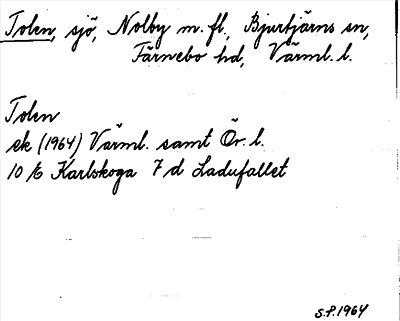 Tolen, sjö, Nolby m. fl., Bjurtjärns sn,
Färnebo hd, Värml. l.
Tolen
ek (1964) Värml. samt Ör. l.
10 E Karlskoga 7 d Ladufallet
S.P. 1964